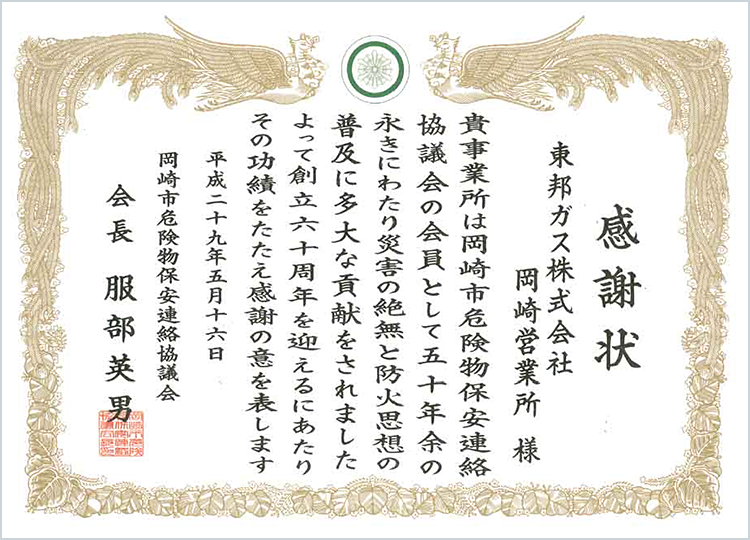 感謝状
東邦ガス株式会社
岡崎営業所 様
貴事業所は岡崎市危険物保安連絡
協議会の会員として五十年余の
永きにわたり災害の絶無と防火思想の
普及に多大な貢献をされました
よって創立六十周年を迎えるにあたり
その功績をたたえ感謝の意を表します
平成二十九年五月十六日
岡崎市危険物保安連絡協議会
会長 服部英男